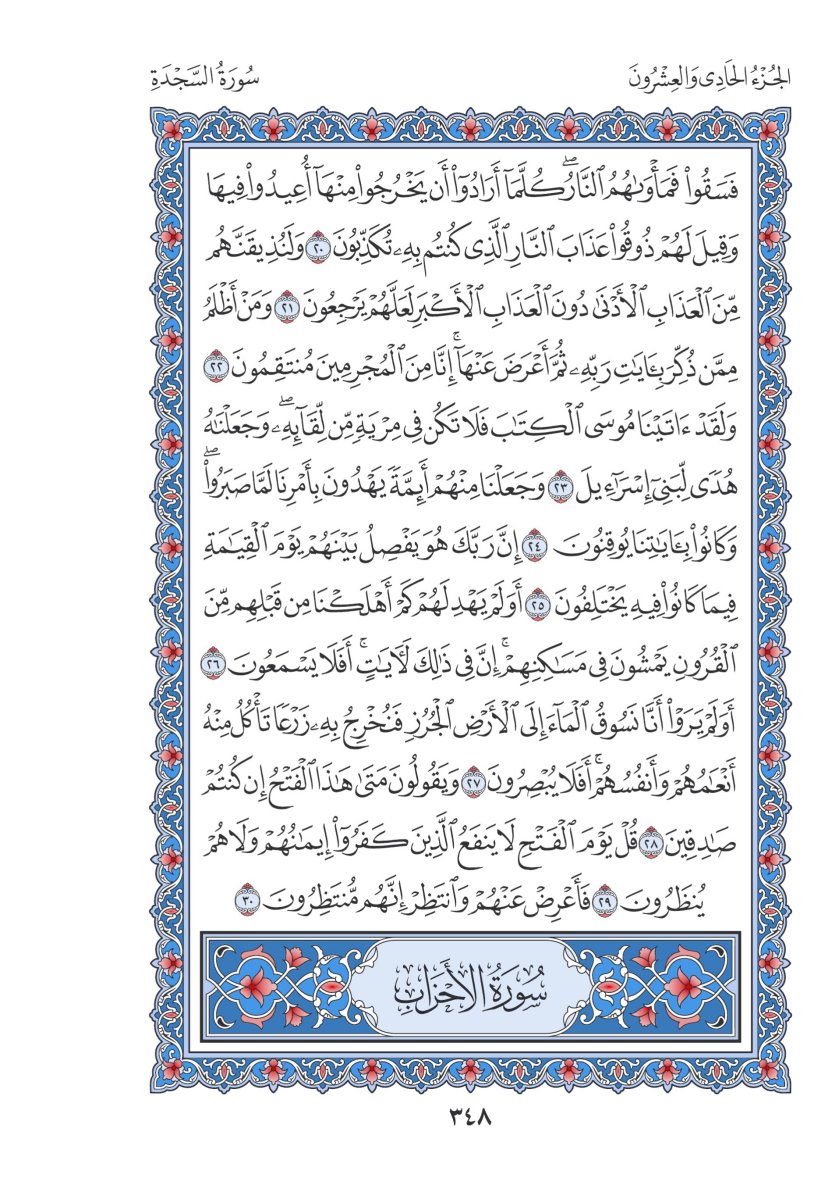 الجُزْءُ الحَادِى وَالعِشْرُونَ
سُورَةُ السَّجْدَةِ
فَسَقُوا۟ فَمَأْوَىٰهُمُ ٱلنَّارُ ۖ كُلَّمَآ أَرَادُوٓا۟ أَن يَخْرُجُوا۟ مِنْهَآ أُعِيدُوا۟ فِيهَا
وَقِيلَ لَهُمْ ذُوقُوا۟ عَذَابَ ٱلنَّارِ ٱلَّذِى كُنتُم بِهِۦ تُكَذِّبُونَ ٢٠ وَلَنُذِيقَنَّهُم
مِّنَ ٱلْعَذَابِ ٱلْأَدْنَىٰ دُونَ ٱلْعَذَابِ ٱلْأَكْبَرِ لَعَلَّهُمْ يَرْجِعُونَ ٢١ وَمَنْ أَظْلَمُ
مِمَّن ذُكِّرَ بِـَٔايَـٰتِ رَبِّهِۦ ثُمَّ أَعْرَضَ عَنْهَآ ۚ إِنَّا مِنَ ٱلْمُجْرِمِينَ مُنتَقِمُونَ ٢٢
وَلَقَدْ ءَاتَيْنَا مُوسَى ٱلْكِتَـٰبَ فَلَا تَكُن فِى مِرْيَةٍ مِّن لِّقَآئِهِۦ ۖ وَجَعَلْنَـٰهُ
هُدًى لِّبَنِىٓ إِسْرَٰٓءِيلَ ٢٣ وَجَعَلْنَا مِنْهُمْ أَئِمَّةً يَهْدُونَ بِأَمْرِنَا لَمَّا صَبَرُوا۟ ۖ
وَكَانُوا۟ بِـَٔايَـٰتِنَا يُوقِنُونَ ٢٤ إِنَّ رَبَّكَ هُوَ يَفْصِلُ بَيْنَهُمْ يَوْمَ ٱلْقِيَـٰمَةِ
فِيمَا كَانُوا۟ فِيهِ يَخْتَلِفُونَ ٢٥ أَوَلَمْ يَهْدِ لَهُمْ كَمْ أَهْلَكْنَا مِن قَبْلِهِم مِّنَ
ٱلْقُرُونِ يَمْشُونَ فِى مَسَـٰكِنِهِمْ ۚ إِنَّ فِى ذَٰلِكَ لَـَٔايَـٰتٍ ۖ أَفَلَا يَسْمَعُونَ ٢٦
أَوَلَمْ يَرَوْا۟ أَنَّا نَسُوقُ ٱلْمَآءَ إِلَى ٱلْأَرْضِ ٱلْجُرُزِ فَنُخْرِجُ بِهِۦ زَرْعًا تَأْكُلُ مِنْهُ
أَنْعَـٰمُهُمْ وَأَنفُسُهُمْ ۚ أَفَلَا يُبْصِرُونَ ٢٧ وَيَقُولُونَ مَتَىٰ هَـٰذَا ٱلْفَتْحُ إِن كُنتُمْ
صَـٰدِقِينَ ٢٨ قُلْ يَوْمَ ٱلْفَتْحِ لَا يَنفَعُ ٱلَّذِينَ كَفَرُوٓا۟ إِيمَـٰنُهُمْ وَلَا هُمْ
يُنظَرُونَ ٢٩ فَأَعْرِضْ عَنْهُمْ وَٱنتَظِرْ إِنَّهُم مُّنتَظِرُونَ ٣٠
سُورَةُ الأَحْزَابِ
٣٤٨